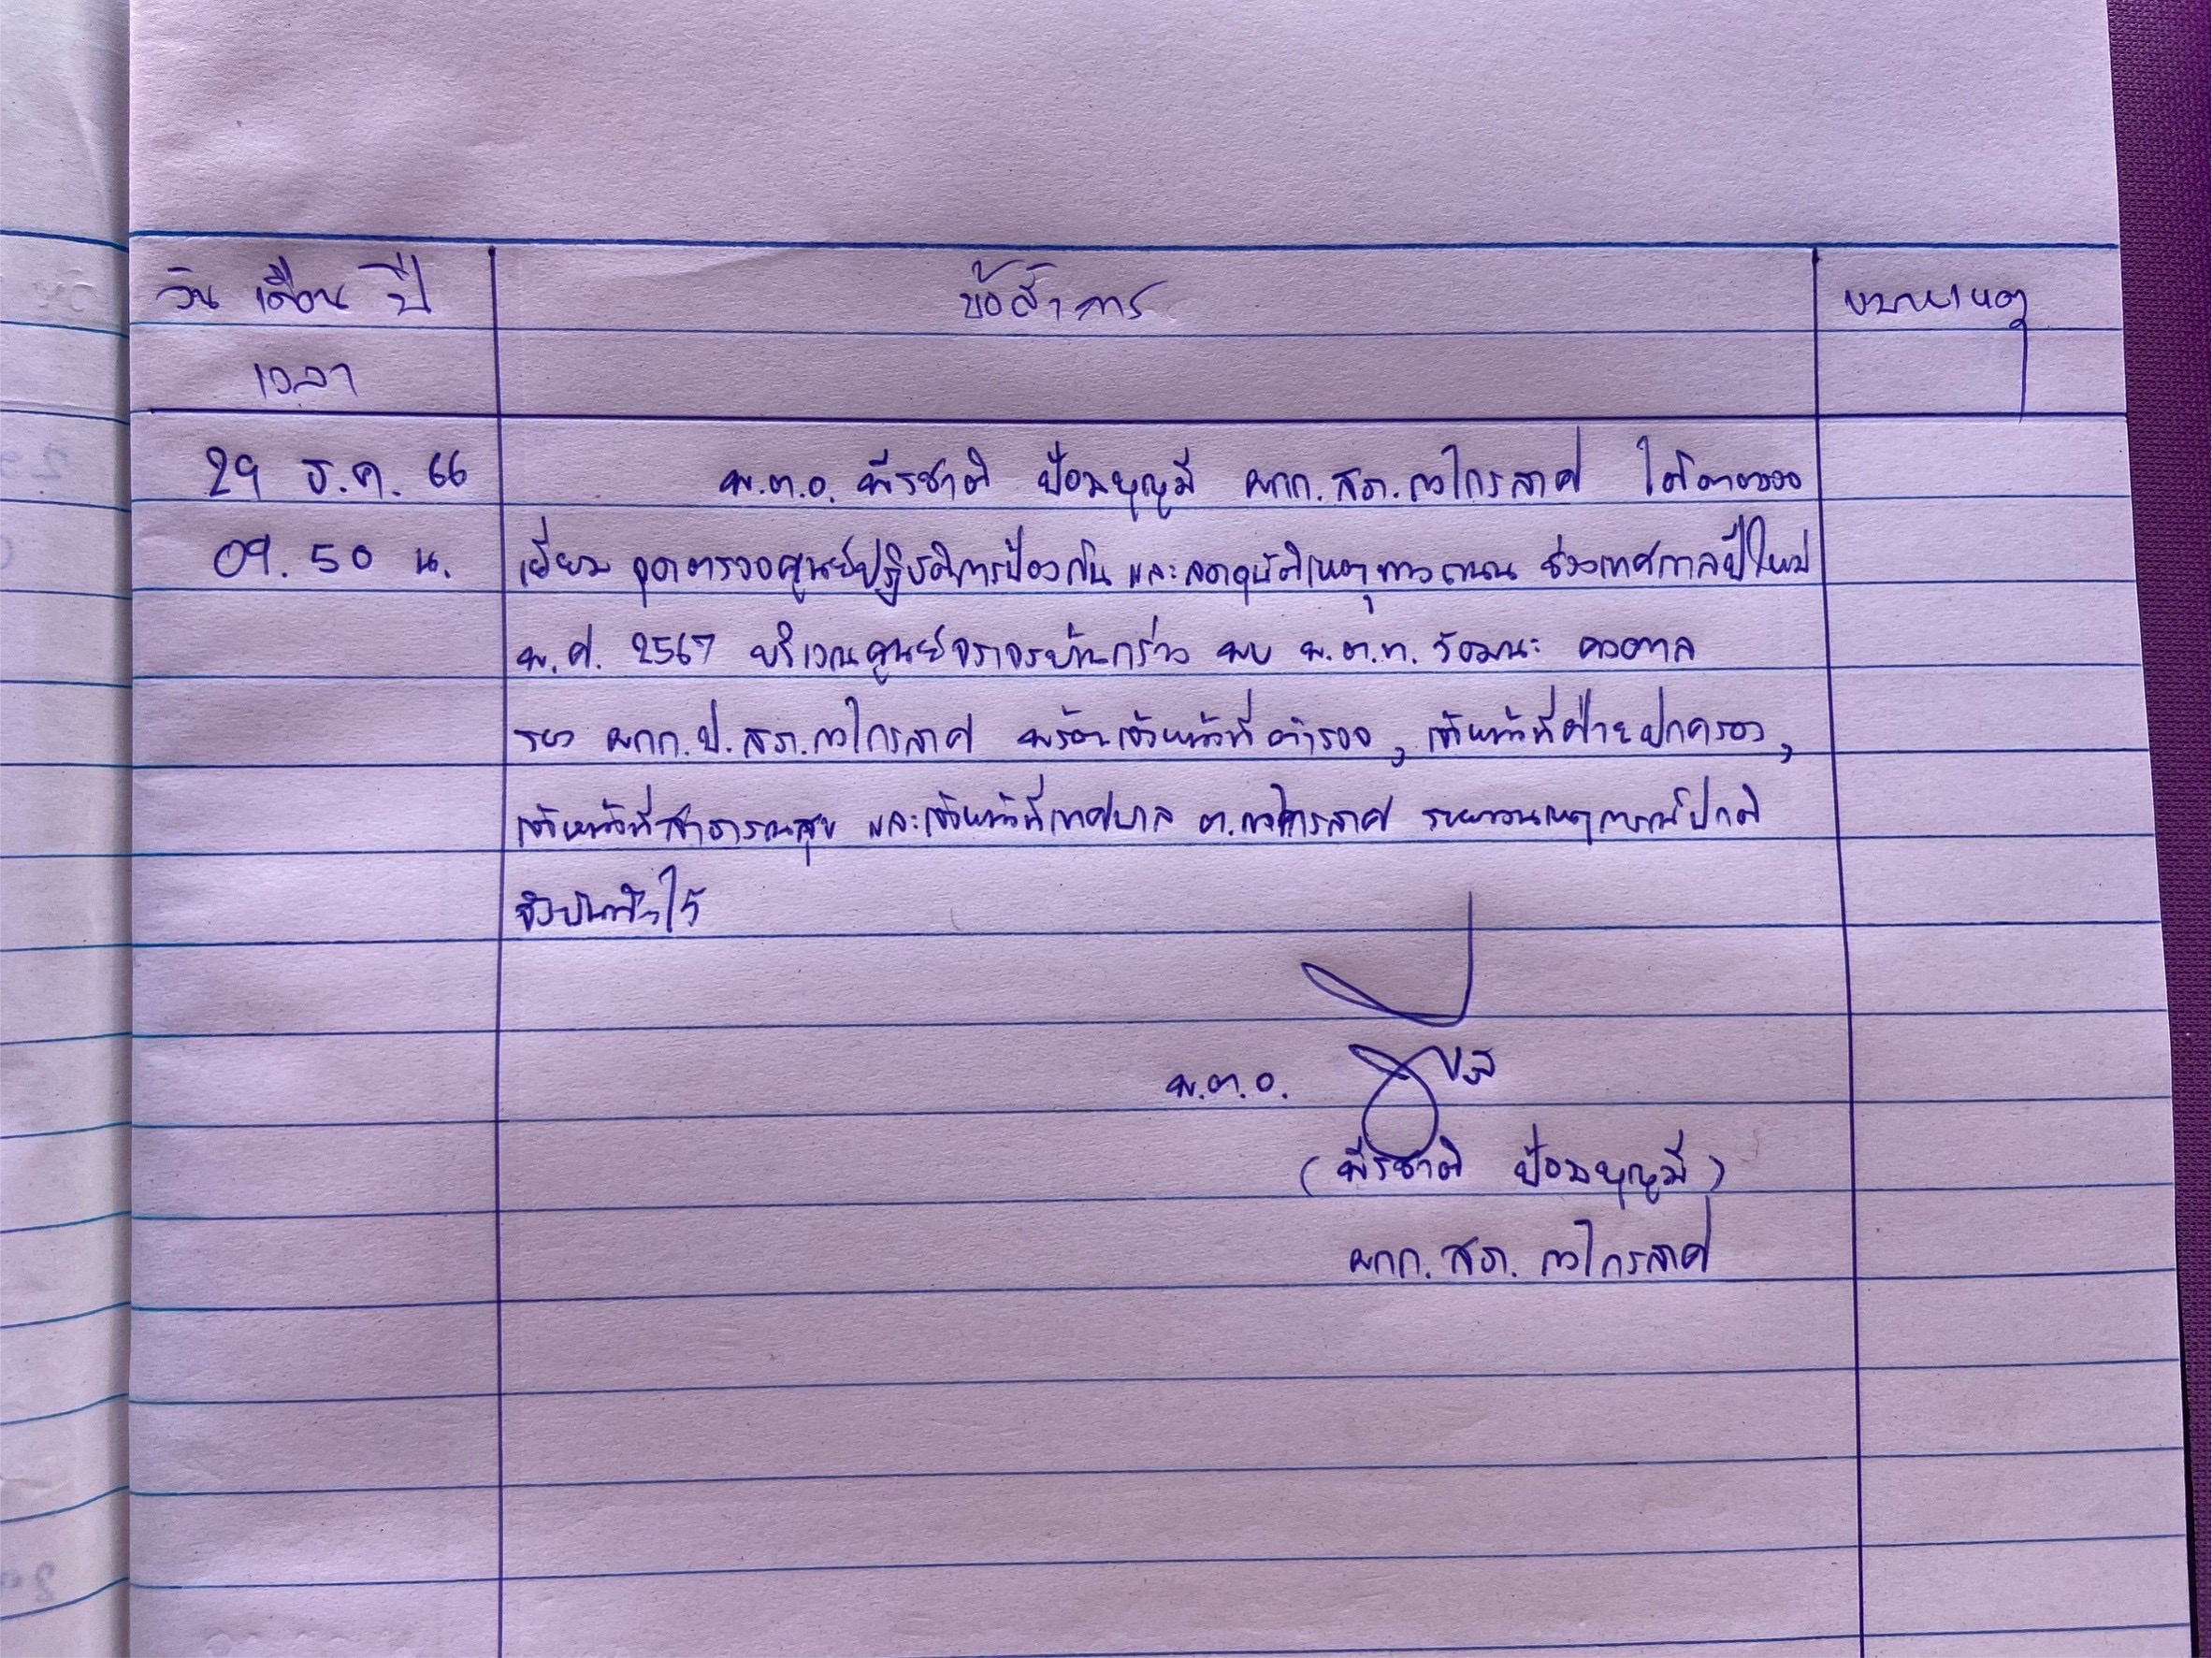 วัน เดือน ปี ข้อสั่งการ หมายเหตุ
เวลา
29 ธ.ค. 66 พ.ต.อ. พีรชาติ ป้อมบุญมี ผกก.สภ.กงไกรลาศ ได้มาตรวจ
09.50 น. เยี่ยม จุดตรวจศูนย์ปฏิบัติการป้องกัน และลดอุบัติเหตุทางถนน ช่วงเทศกาลปีใหม่
พ.ศ. 2567 บริเวณศูนย์จราจรบ้านกร่าง พบ พ.ต.ท. วัฒนะ
รอง ผกก.ป.สภ.กงไกรลาศ พร้อมเจ้าหน้าที่ตำรวจ, เจ้าหน้าที่ฝ่ายปกครอง,
เจ้าหน้าที่สาธารณสุข และเจ้าหน้าที่เทศบาล ต.กงไกรลาศ รายงานเหตุการณ์ปกติ
จึงบันทึกไว้
พ.ต.อ.
(พีรชาติ ป้อมบุญมี)
ผกก.สภ.กงไกรลาศ